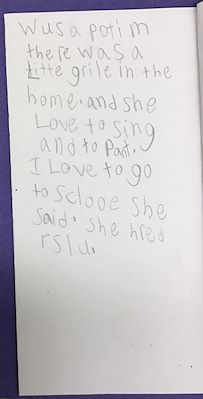 Wus a poti m
there was a
Litte grile in the
home. and she
Love to sing
and to Pant.
I Love to go
to sclooe she
said. she hred
rslu.